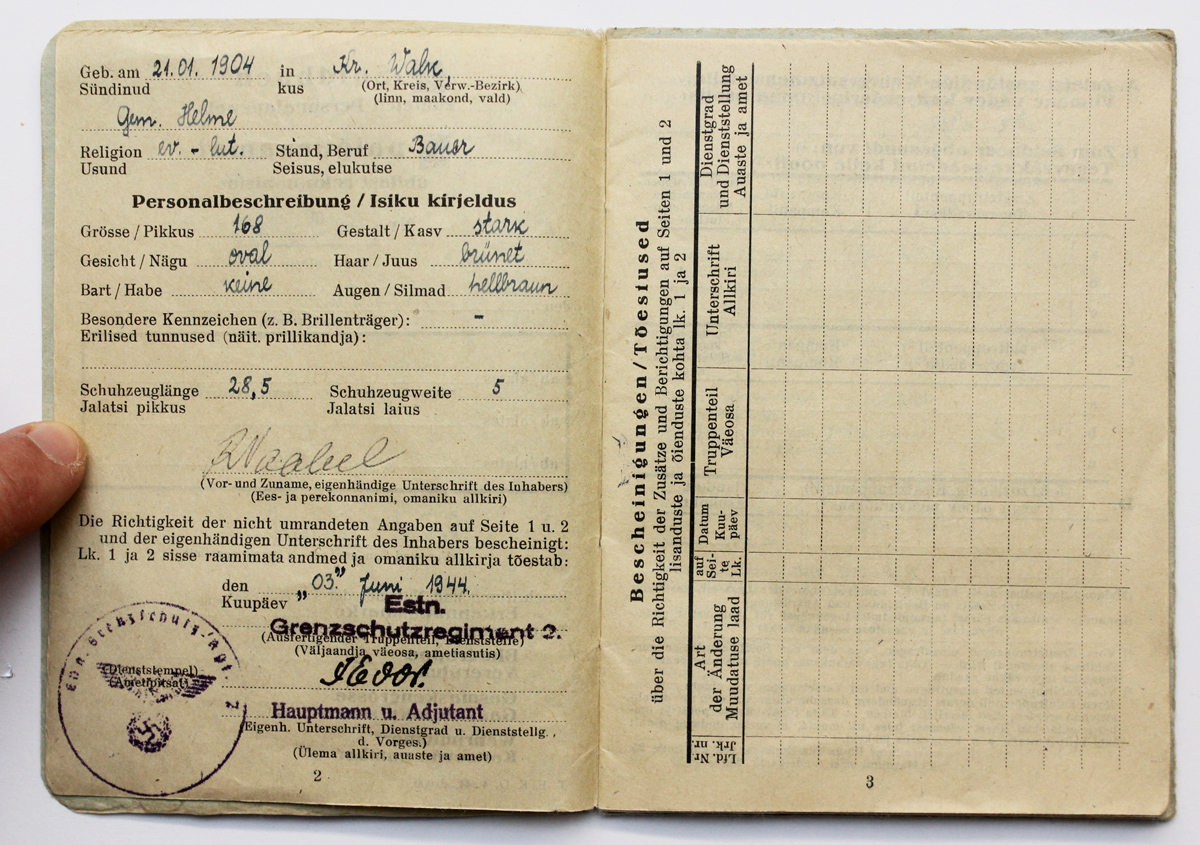 Geb. am 21.01. 1904 in Kr. Walk,
Sündinud kus (Ort, Kreis, Verw.-Bezirk)
(linn, maakond, vald)
Gem. Helme
Religion ev. - lut. Stand, Beruf Bauer
Usund Seisus, elukutse
Personalbeschreibung / Isiku kirjeldus
Grösse / Pikkus 168 Gestalt / Kasv stark
Gesicht / Nägu oval Haar / Juus brünet
Bart / Habe keine Augen / Silmad hellbraun
Besondere Kennzeichen (z. B. Brillenträger): -
Erilised tunnused (näit. prillikandja):
Schuhzeuglänge 28,5 Schuhzeugweite 5
Jalatsi pikkus Jalatsi laius
(Vor- und Zuname, eigenhändige Unterschrift des Inhabers)
(Ees- ja perekonnanimi, omaniku allkiri)
Die Richtigkeit der nicht umrandeten Angaben auf Seite 1 u. 2
und der eigenhändigen Unterschrift des Inhabers bescheinigt:
Lk. 1 ja 2 sisse raamimata andmed ja omaniku allkirja tõestab:
den "03." Juni 1944.
Kuupäev
Estn.
Grenzschutzregiment 2.
(Ausfertigender Truppenteil, Dienststelle)
(Väljaandja väeosa, ametiasutis)
(Dienststempel)
(Ametipitsat)
Hauptmann u. Adjutant
(Eigenh. Unterschrift, Dienstgrad u. Dienststellg.,
d. Vorges.)
(Ülema allkiri, auaste ja amet)
2
Bescheinigungen / Tõestused
über die Richtigkeit der Zusätze und Berichtigungen auf Seiten 1 und 2
lisanduste ja õienduste kohta lk. 1 ja 2
Lfd. Nr.
Jrk. nr.
Art
der Änderung
Muudatuse laad
auf
Sei-
te
Lk.
Datum
Kuu-
päev
Truppenteil
Väeosa
Unterschrift
Allkiri
Dienstgrad
und Dienststellung
Auaste ja amet
3